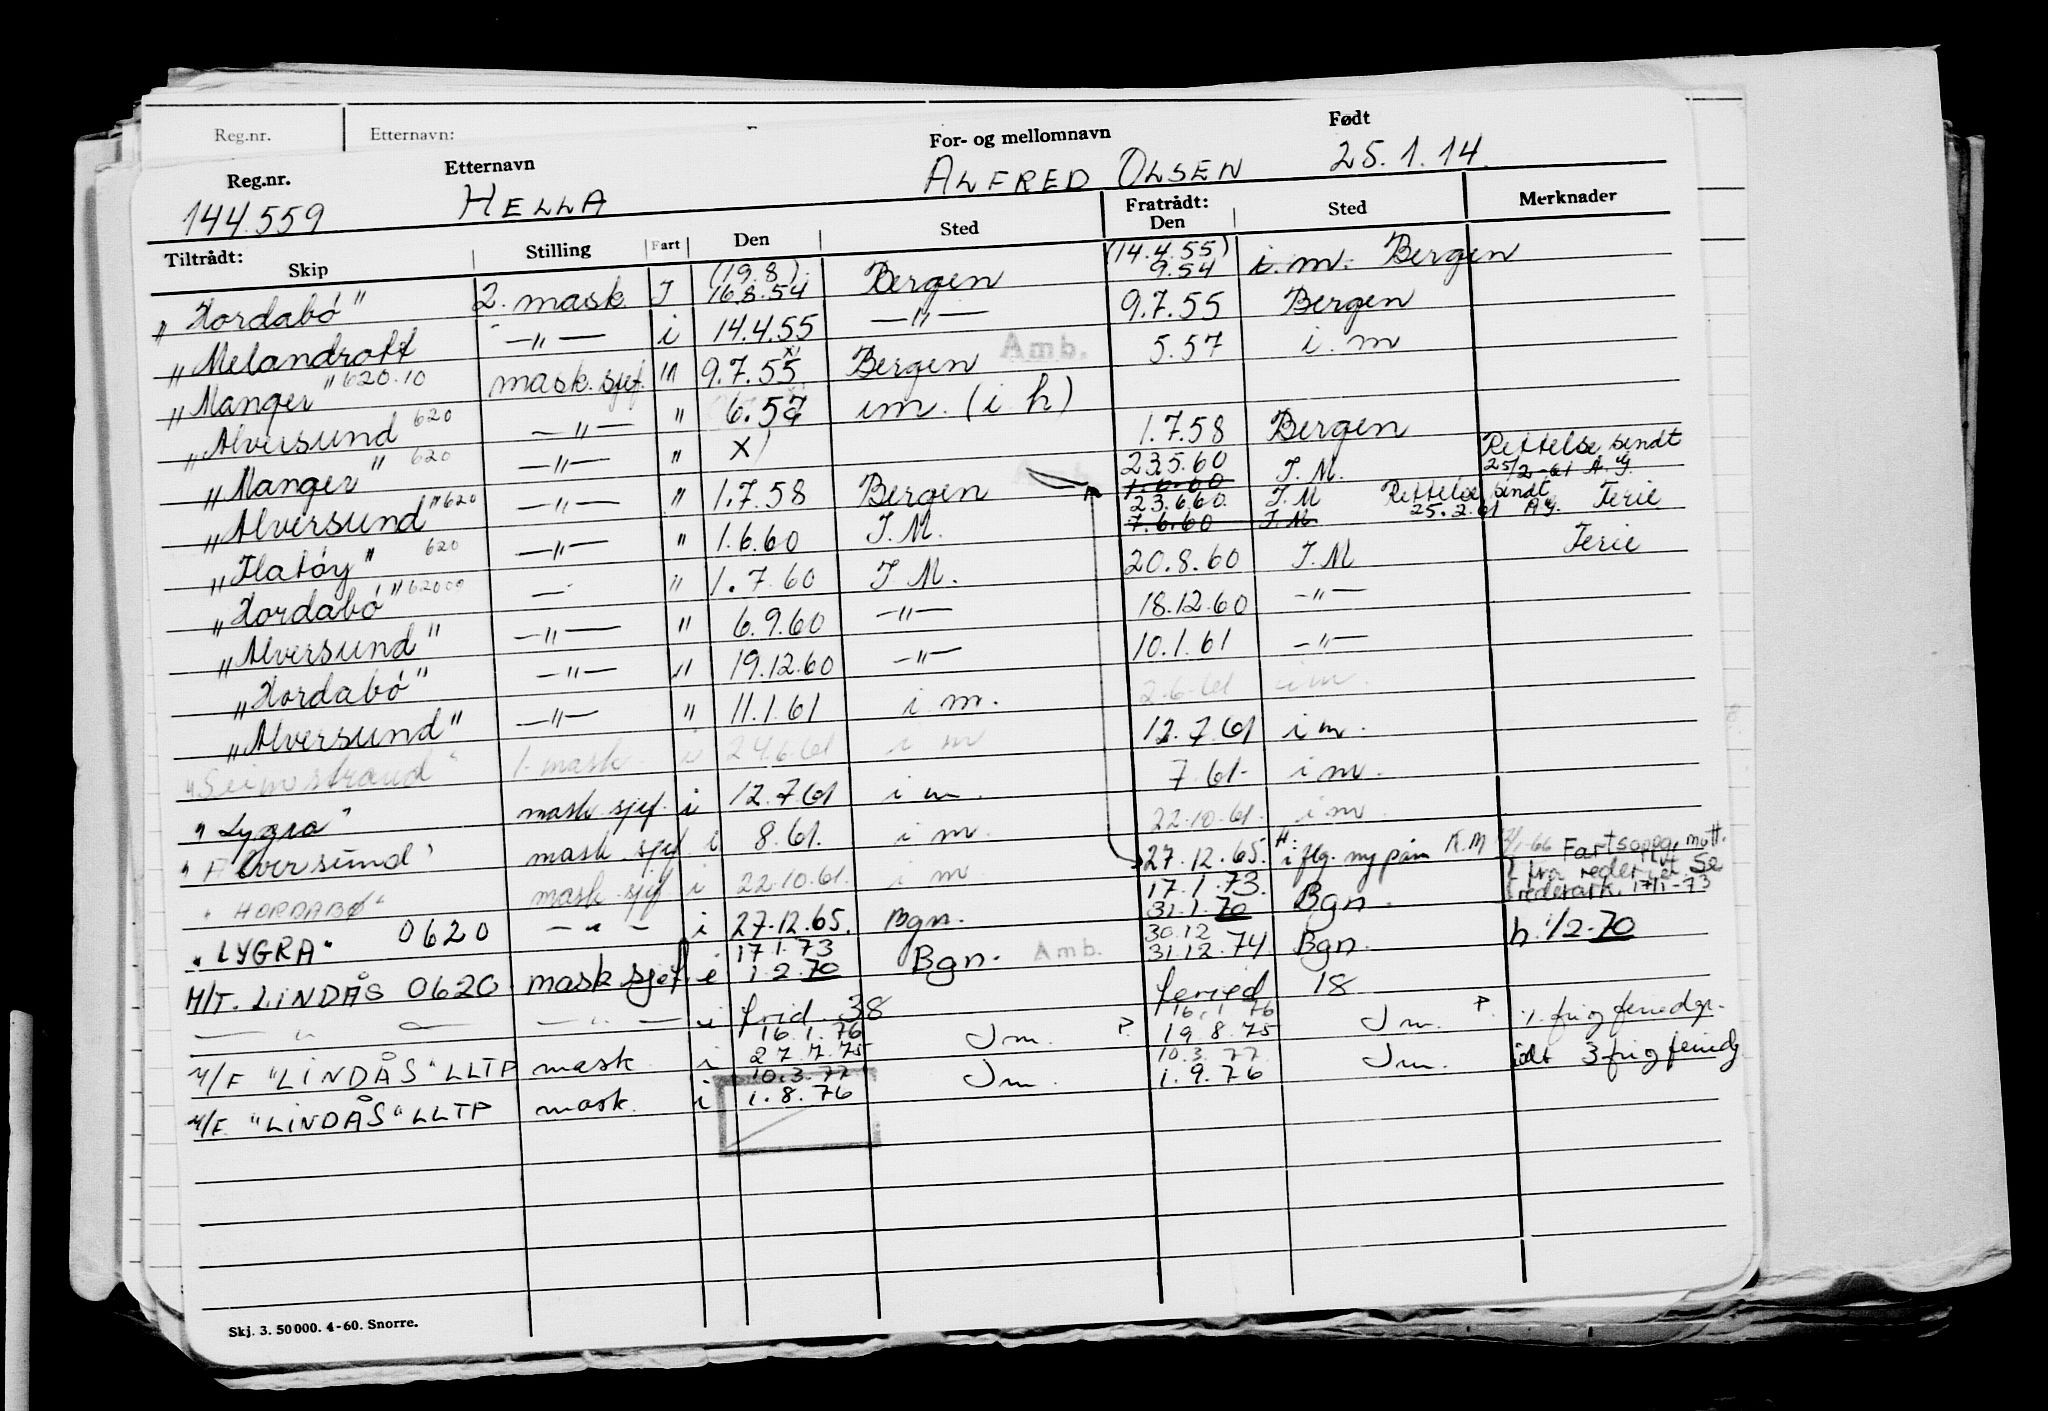 Reg.nr. Etternavn:
Reg.nr. Etternavn For- og mellomnavn Født
144.559 HELLA ALFRED OLSEN 25.1.14.
Tiltrådt: Skip Stilling Fart Den Sted Fratrådt: Den Sted Merknader
(19.8) (14.4.55)
"Hordabö" 2. mask J 16.8.54 Bergen 9.54 i.m. Bergen
"Melandrott —"— i 14.4.55 —"— 9.7.55 Bergen
"Manger" 620.10 mask.sjef. " 9.7.55 x) Bergen Amb. 5.57 i.m
"Alversund 620 —"— " 6.57 im. (i h)
"Manger" 620 —"— " x) 1.7.58 Bergen
23.5.60 J.M. Rettelse sendt 25/2-61 A.G.
"Alversund" 620 —"— " 1.7.58 Bergen 1.6.60
23.6.60. J.M Rettelse sendt 25.2.61 A.G. Ferie
"Flatöy" 620 —"— " 1.6.60 J.M. 7.6.60 J.M
"Hordabö" 62000 — " 1.7.60 J M. 20.8.60 J.M Ferie
"Alversund" —"— " 6.9.60 —"— 18.12.60 —"—
"Hordabö" —"— " 19.12.60 —"— 10.1.61 —"—
"Alversund" —"— " 11.1.61 i m. 2.6.61 im.
"Seimstrand" 1. mask. i 24.6.61 i m 12.7.61 i m.
"Lygra" mask.sjef. i 12.7.61 i m. 7.61- i m.
"Alversund" mask.sjef. i 8.61. i m. 22.10.61. i m.
"HORDABØ" mask.sjef i 22.10.61. i m. 27.12.65. i flg. R.M /1-66 Fartsoppg. mott. fra rederiet Se rederark. 17/1-73
17.1.73.
"LYGRA" 0620 — " — i 27.12.65. Bgn. 31.1.70 Bgn.
17.1.73 30.12
M/T. LINDÅS 0620 mask sjef. i 1.2.70 Bgn. Amb. 31.12.74 Bgn. h. 1/2-70
— " — — " — i frid. 38 feried 18
16.1.76 16.1.76
M/F "LINDÅS" LLTP mask i 27.7.75 Jm. P. 19.8.75 Jm. P.
10.3.77 10.3.77
M/F. "LINDÅS" LLTP mask. i 1.8.76 Jm. 1.9.76 Jm.
Skj. 3. 50000. 4-60. Snorre.